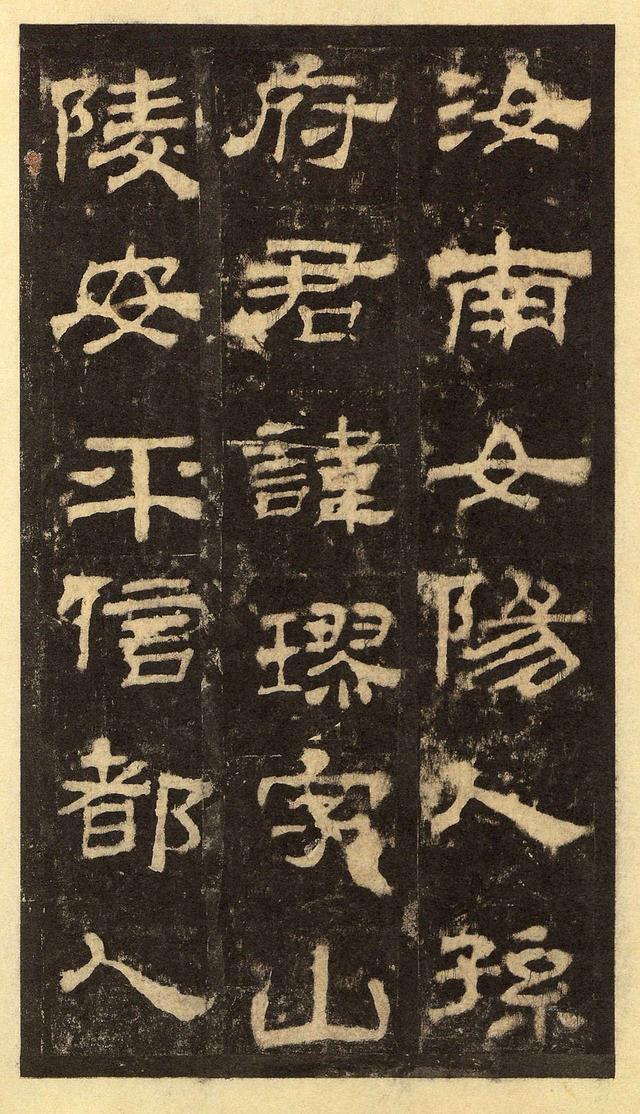 汝南女陽人孫
府君諱璆字山
陵安平信都人